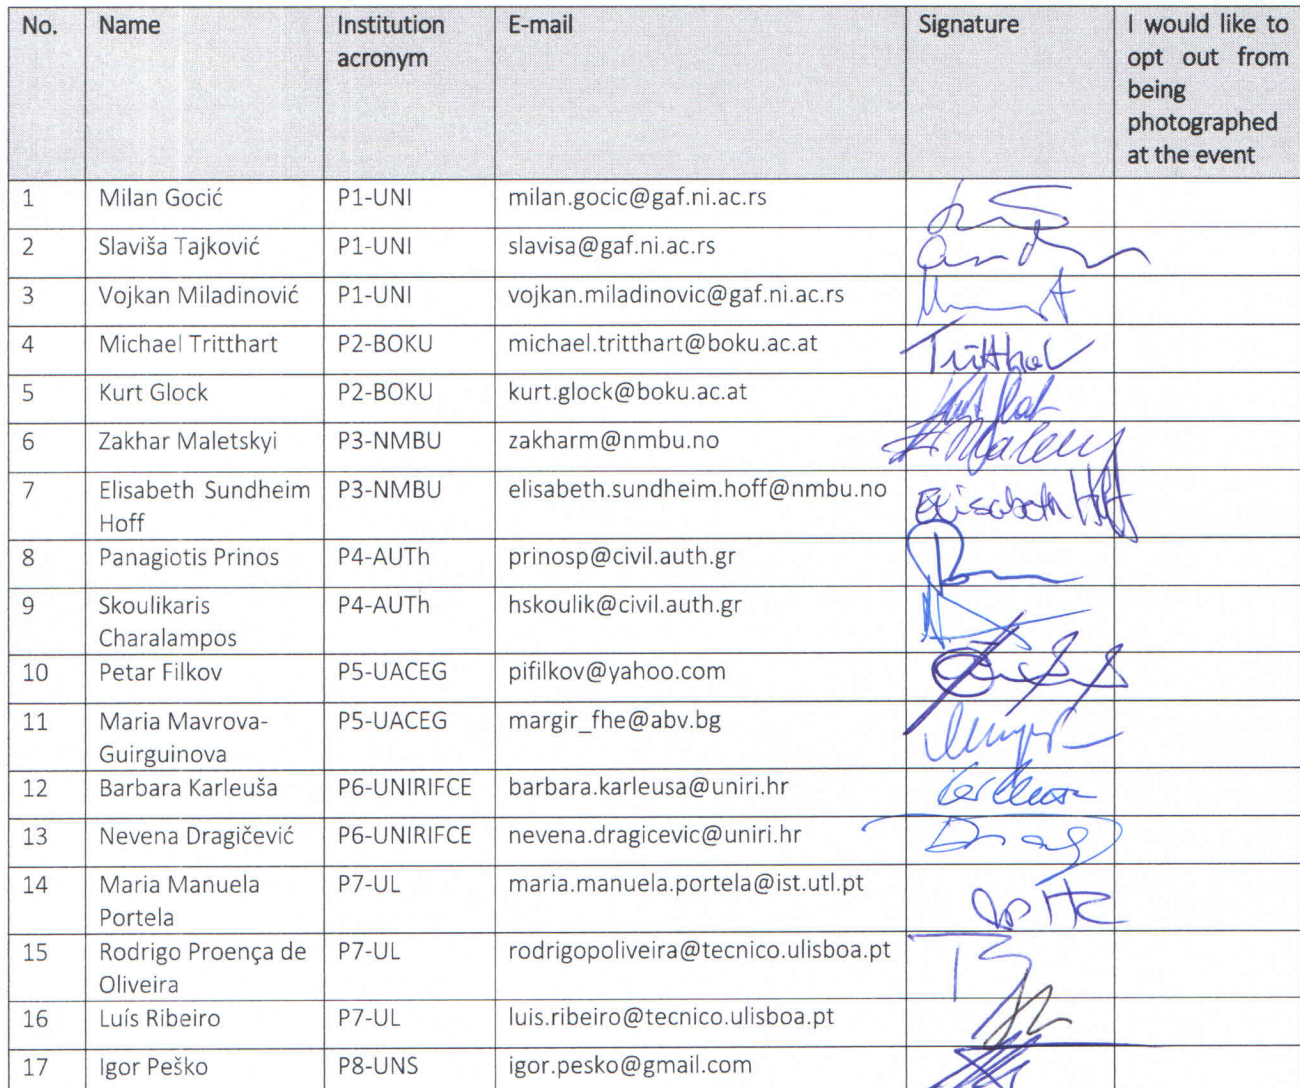 No. Name Institution acronym E-mail Signature I would like to opt out from being photographed at the event
1 Milan Gocić P1-UNI milan.gocic@gaf.ni.ac.rs
2 Slaviša Tajković P1-UNI slavisa@gaf.ni.ac.rs
3 Vojkan Miladinović P1-UNI vojkan.miladinovic@gaf.ni.ac.rs
4 Michael Tritthart P2-BOKU michael.tritthart@boku.ac.at Tritthar
5 Kurt Glock P2-BOKU kurt.glock@boku.ac.at
6 Zakhar Maletskyi P3-NMBU zakharm@nmbu.no
7 Elisabeth Sundheim Hoff P3-NMBU elisabeth.sundheim.hoff@nmbu.no Elisabeth Hoff
8 Panagiotis Prinos P4-AUTh prinosp@civil.auth.gr
9 Skoulikaris Charalampos P4-AUTh hskoulik@civil.auth.gr
10 Petar Filkov P5-UACEG pifilkov@yahoo.com
11 Maria Mavrova-Guirguinova P5-UACEG margir_fhe@abv.bg
12 Barbara Karleuša P6-UNIRIFCE barbara.karleusa@uniri.hr
13 Nevena Dragičević P6-UNIRIFCE nevena.dragicevic@uniri.hr
14 Maria Manuela Portela P7-UL maria.manuela.portela@ist.utl.pt
15 Rodrigo Proença de Oliveira P7-UL rodrigopoliveira@tecnico.ulisboa.pt
16 Luís Ribeiro P7-UL luis.ribeiro@tecnico.ulisboa.pt
17 Igor Peško P8-UNS igor.pesko@gmail.com